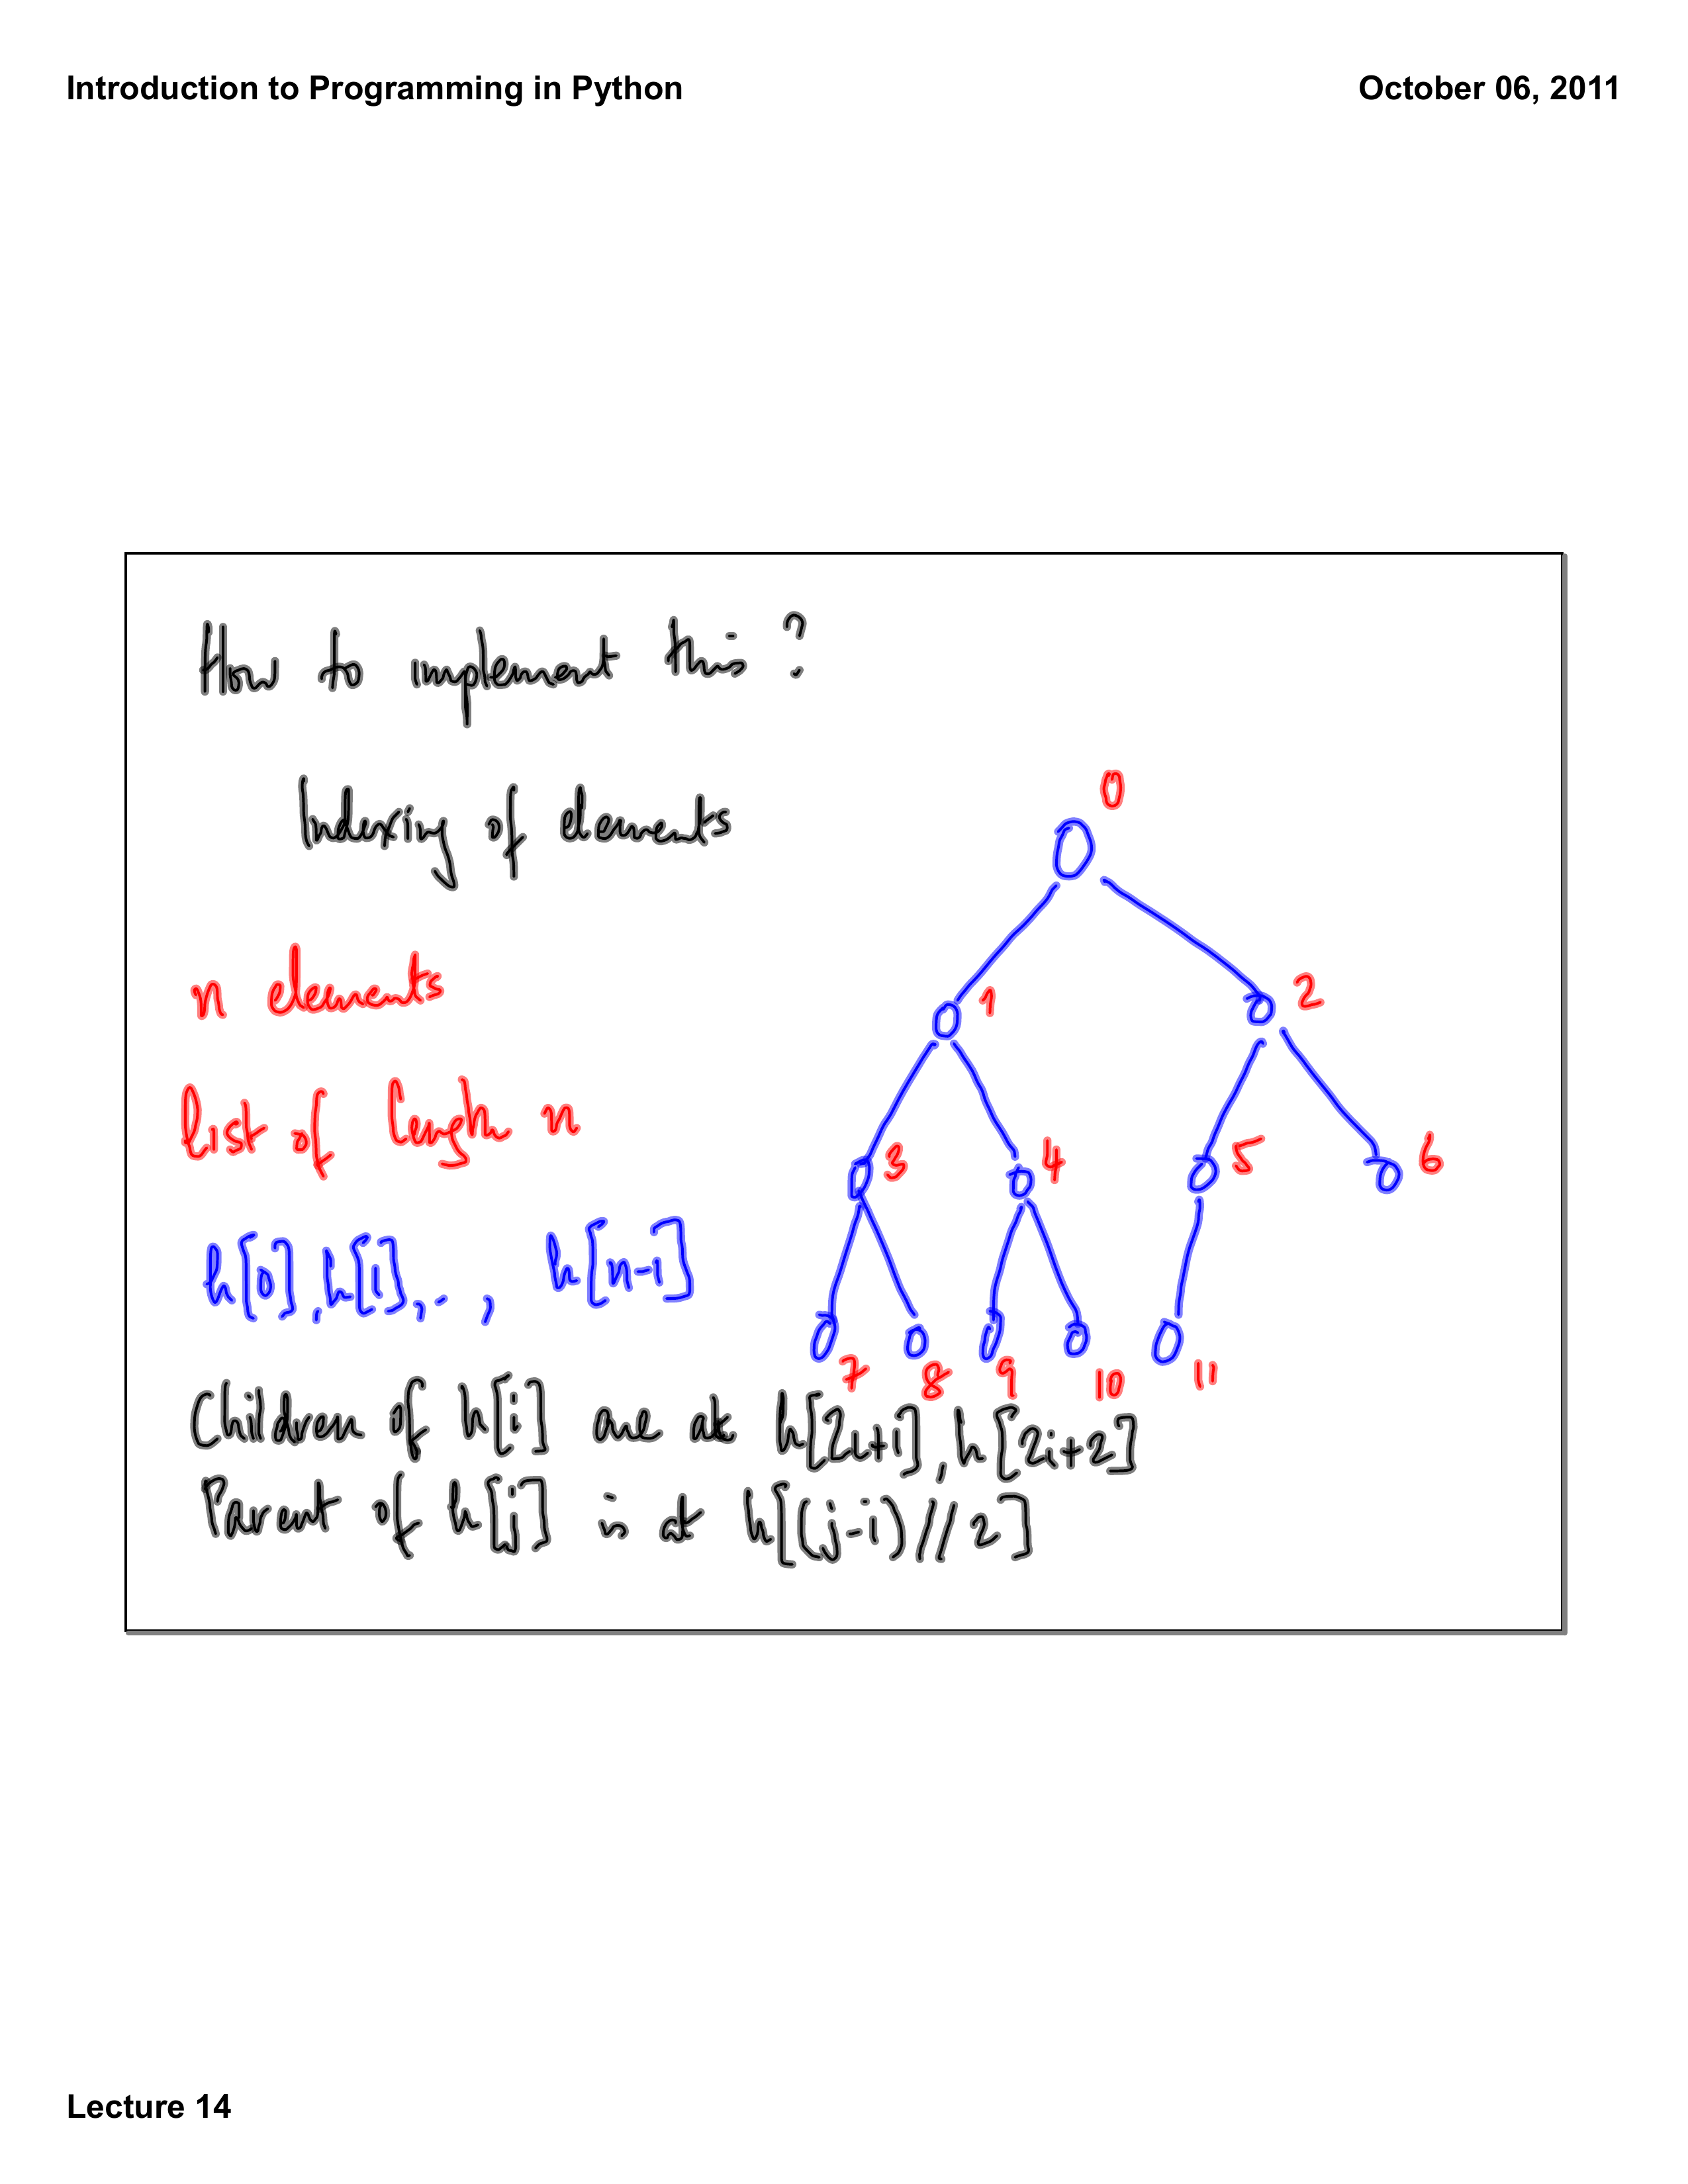 Introduction to Programming in Python
October 06, 2011
How to implement this ?
Indexing of elements
0
1
2
n elements
list of length n
3
4
5
6
h[0], h[1], . . , h[n-1]
7
8
9
10
11
Children of h[i] are at h[2i+1], h[2i+2]
Parent of h[j] is at h[(j-1)//2]
Lecture 14